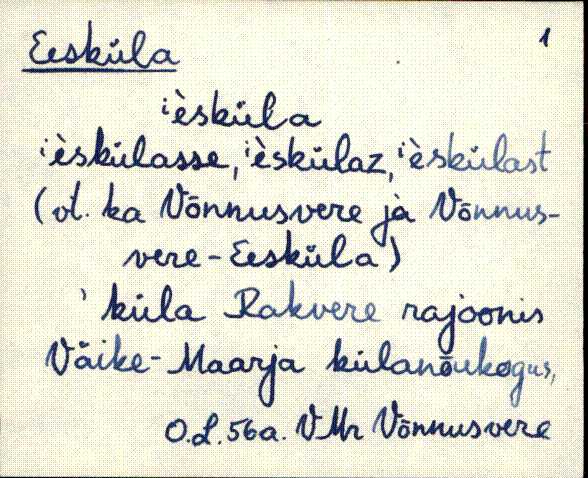 1
Eesküla
ⁱèsküla
ⁱèskülasse, ⁱèskülaz, ⁱèskülast
(vt. ka Võnnusvere ja Võnnus-
vere-Eesküla)
' küla Rakvere rajoonis
Väike-Maarja külanõukogus,
O.L. 56a. VMr Võnnusvere